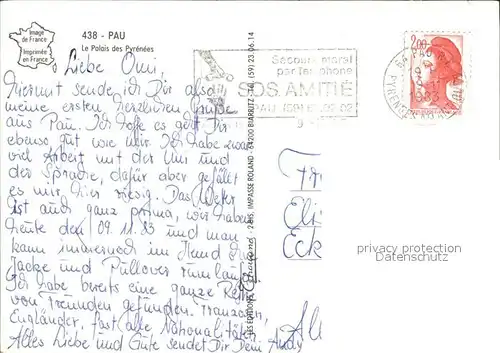 Image
de France
Imprimée
en France
438 - PAU
Le Palais des Pyrénées
Liebe Omi,
Hiermit sende ich Dir also
meine ersten herzlichen Grüße
aus Pau. Ich hoffe es geht Dir
ebenso gut wie mir. Ich habe zwar
viel Arbeit mit der Uni und
der Sprache, dafür aber gefällt
es mir hier riesig. Das Wetter
ist auch ganz prima, wir haben
heute den 09.11.83 und man
kann immer noch im Hemd
Jacke und Pullover rumlaufen
Ich habe bereits eine ganze Reihe
von Freunden gefunden. Franzosen,
Engländer, fast alle Nationalitäten
Alles Liebe und Gute sendet Dir Dein Andy
LES EDITIONS 2 BIS, IMPASSE ROLAND - 64200 BIARRITZ - Tél. (59) 23.06.14
Secours moral
par téléphone
SOS AMITIÉ
PAU (59)
2,00
64 PAU
PYRENEES
Eli
Eck
privacy protection
Datenschutz